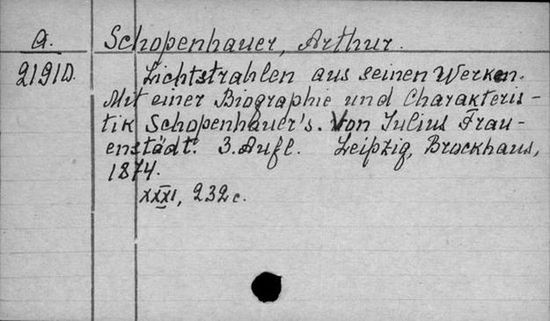 a. Schopenhauer, Arthur.
2191D. Lichtstrahlen aus seinen Werken.
Mit einer Biographie und Charakteris-
tik Schopenhauer's. Von Julius Frau-
enstädt. 3. Aufl. Leipzig, Brockhaus,
1874.
XXXI, 232 c.